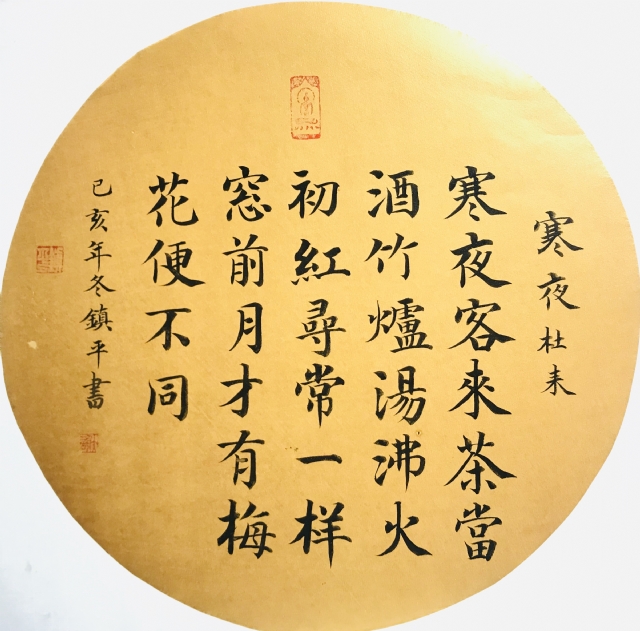 寒夜杜耒
寒夜客來茶當
酒竹爐湯沸火
初紅尋常一样
窓前月才有梅
花便不同
己亥年冬鎮平書